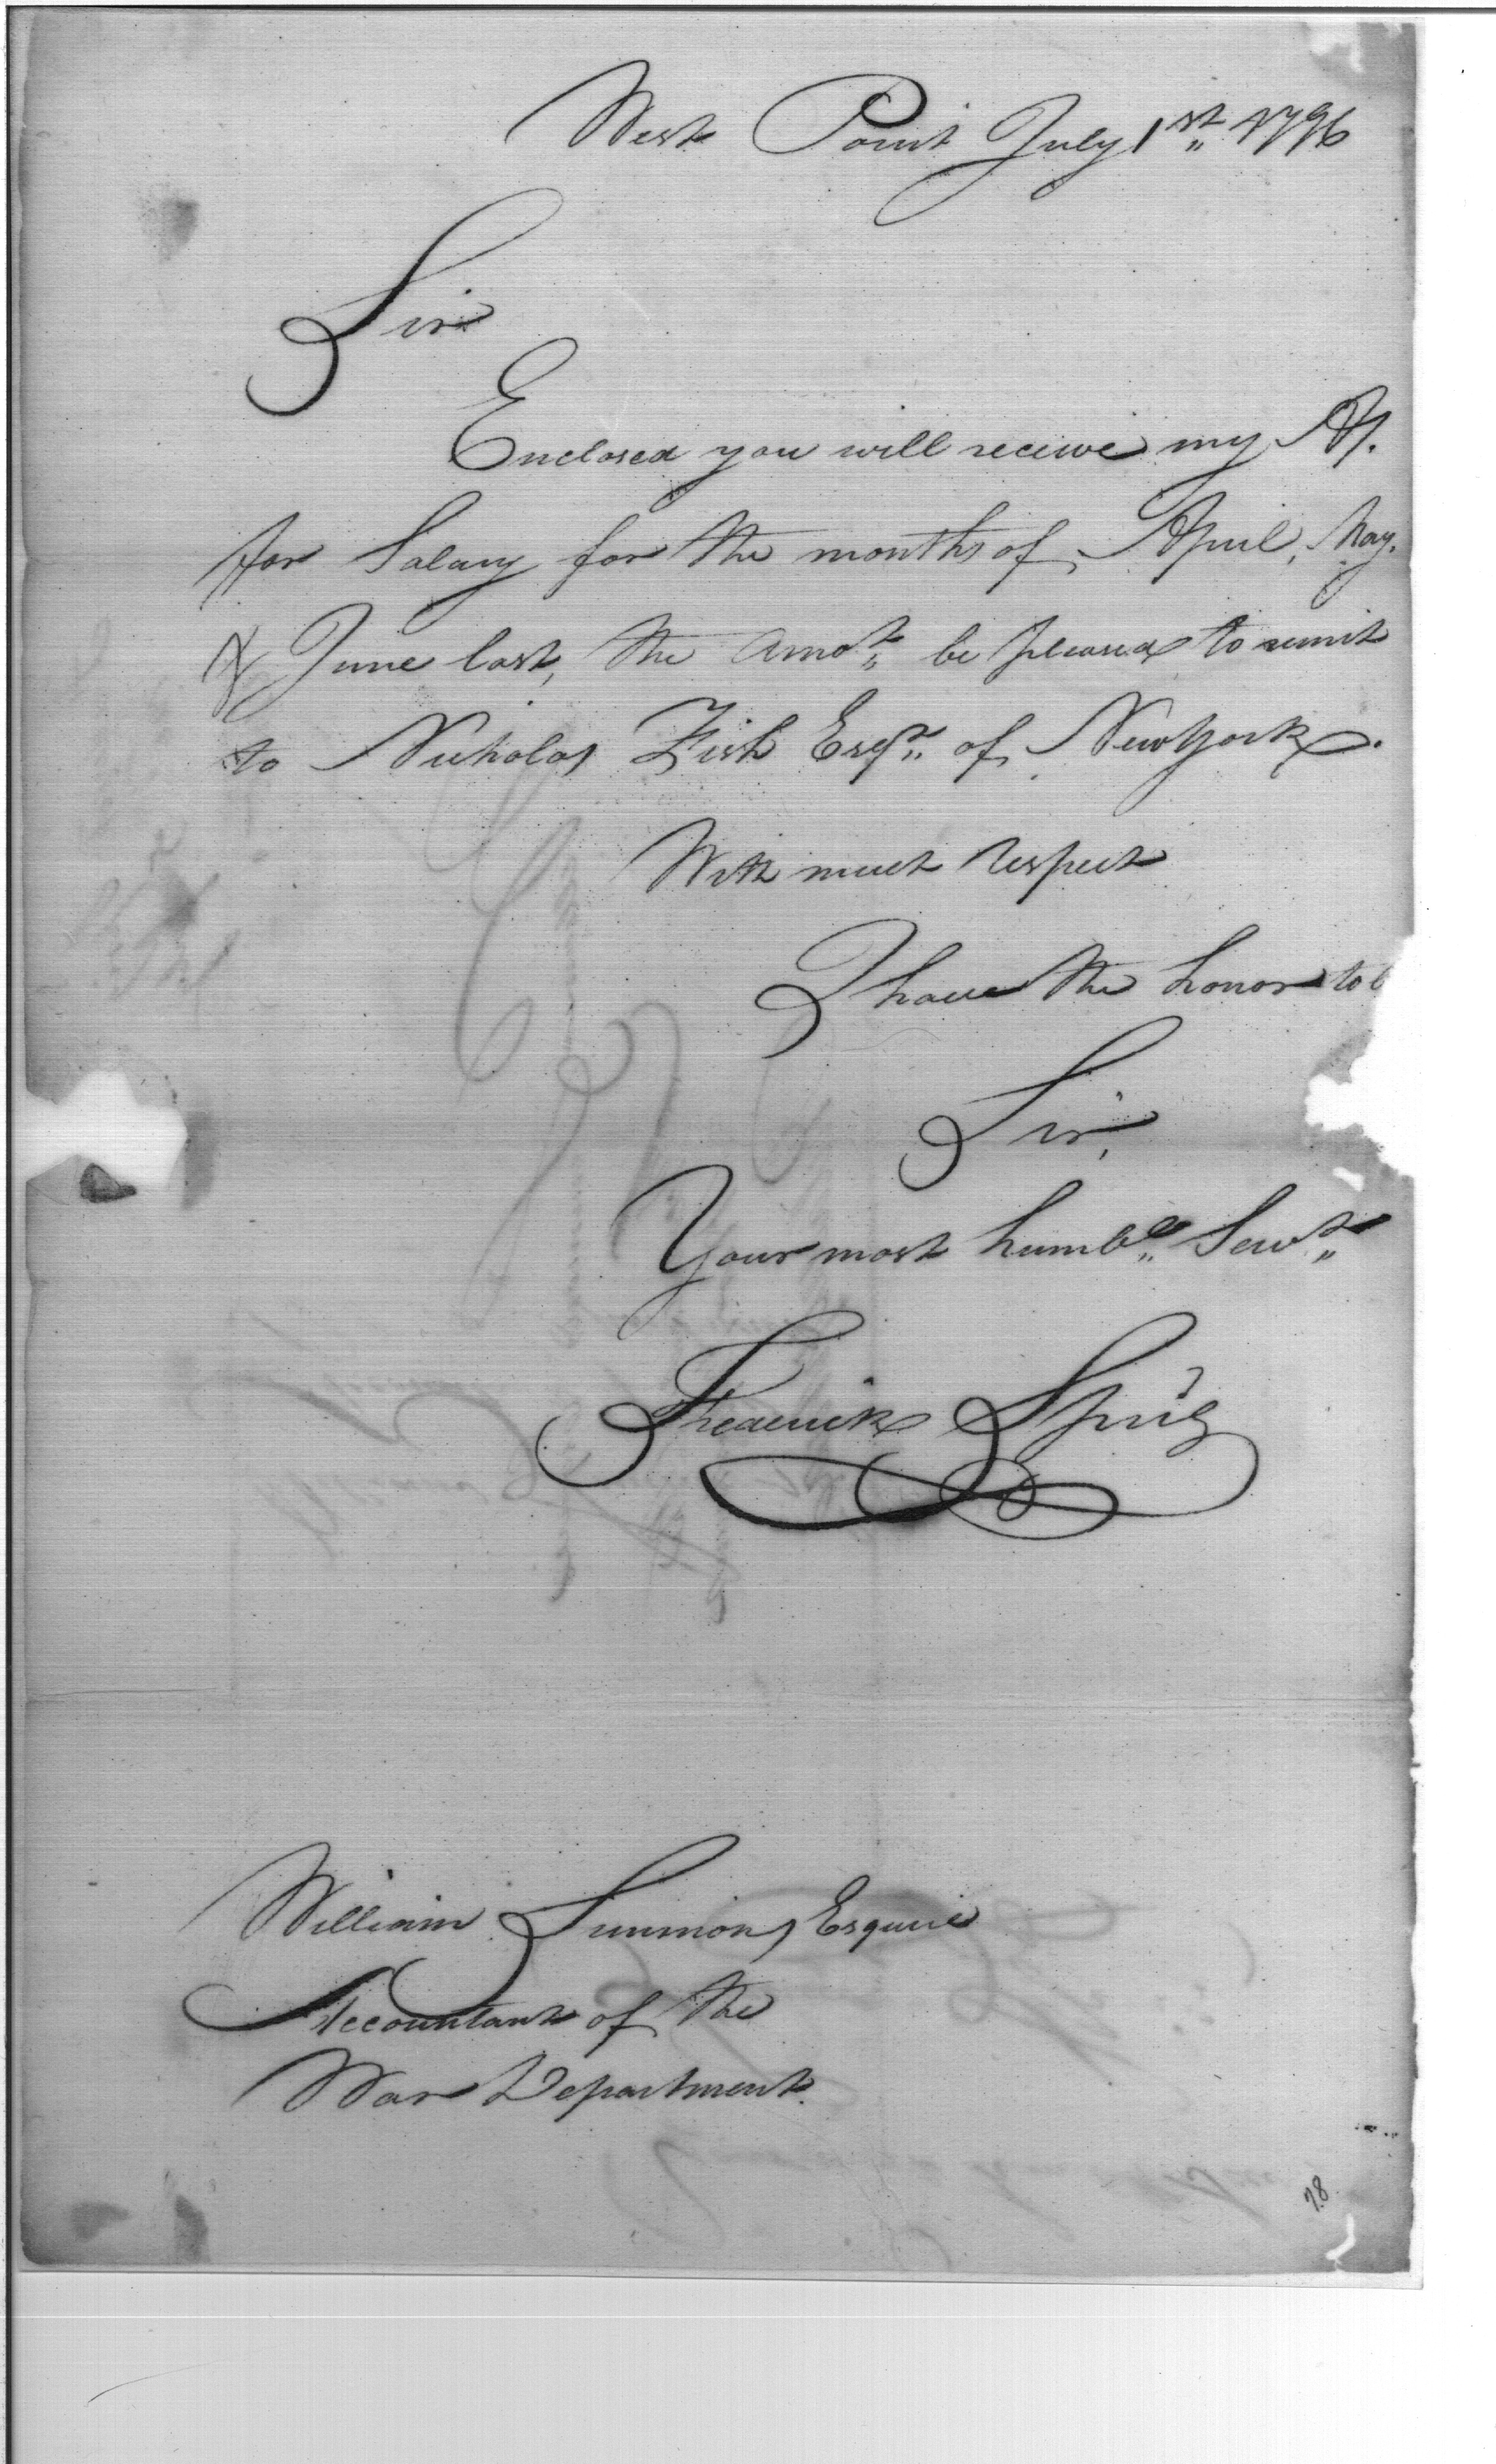 West Point July 1st 1796
Sir
Enclosed you will receive my A/.
for Salary for the months of April, May.
& June last, the Amot. be pleased to remit
to Nicholas Fish Esqr. of New York.
With much respect
I have the honor to b
Sir,
Your most humble Servt
Frederick Spri'g
William Simmons Esquire
Accountant of the
War Department.
78